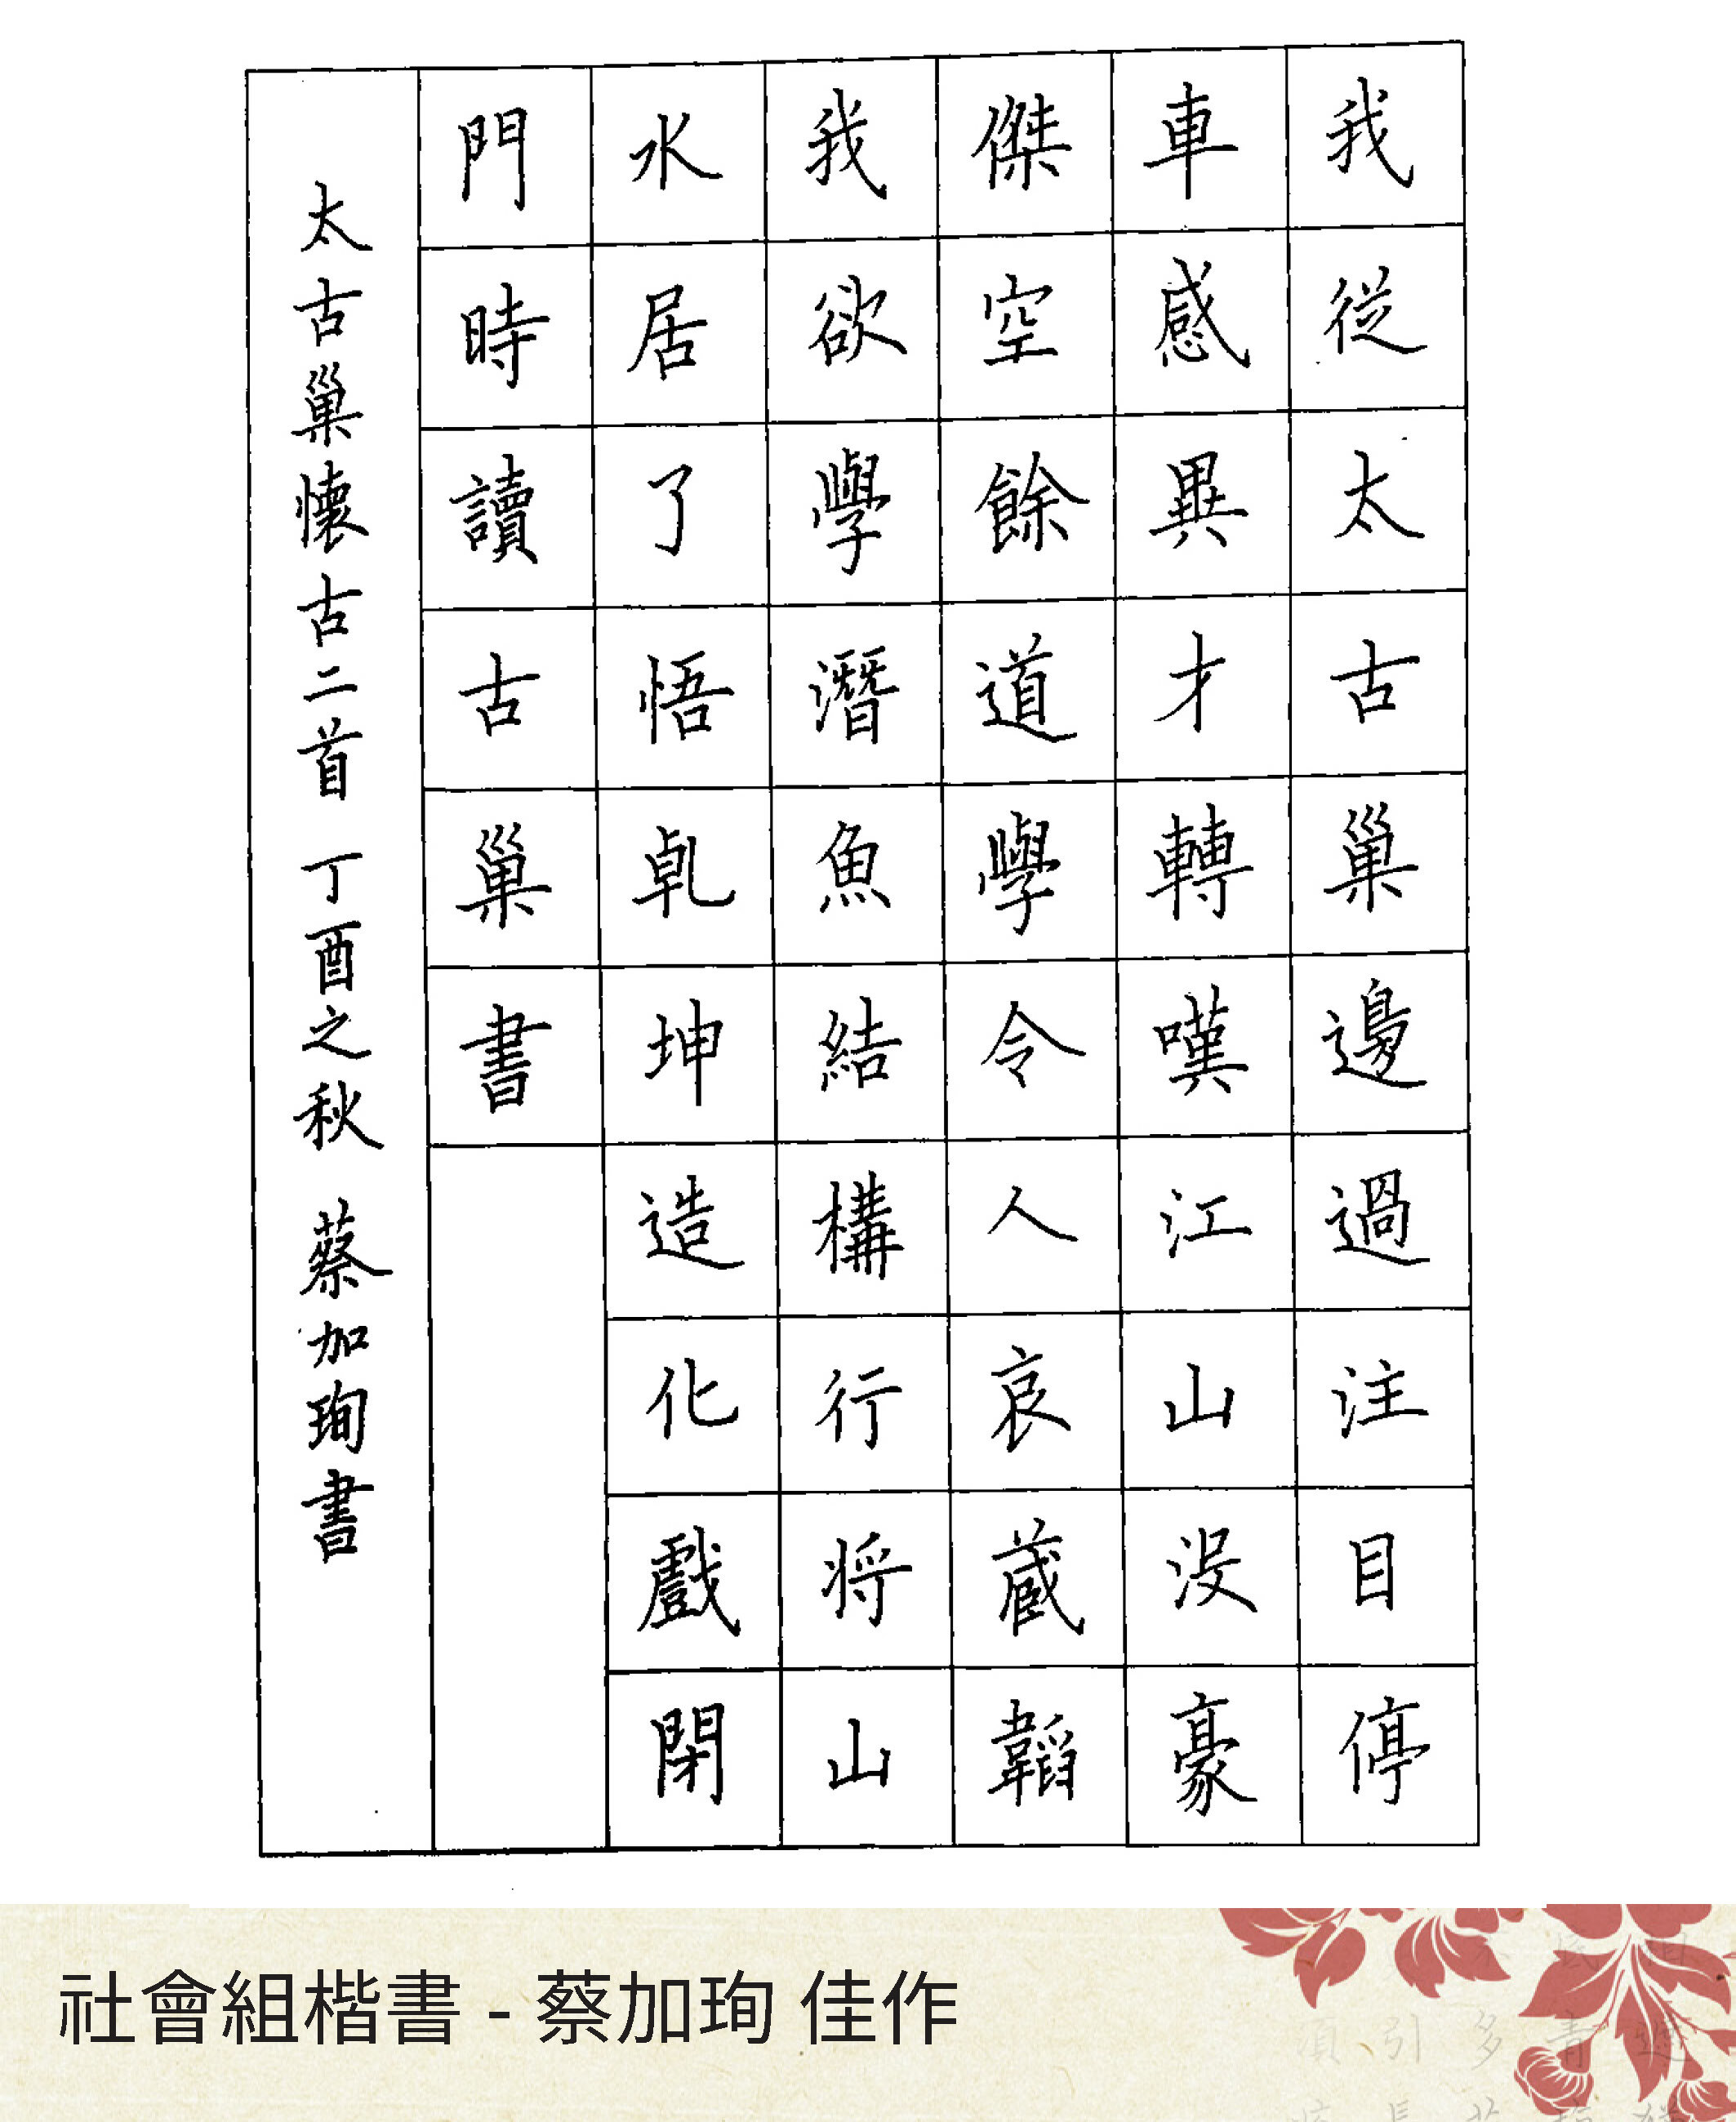 我從太古巢邊過注目停
車感異才轉嘆江山沒豪
傑空餘道學令人哀藏韜
我欲學潛魚結構行將山
水居了悟乾坤造化戲閉
門時讀古巢書
太古巢懷古二首 丁酉之秋 蔡加珣書
社會組楷書 - 蔡加珣 佳作